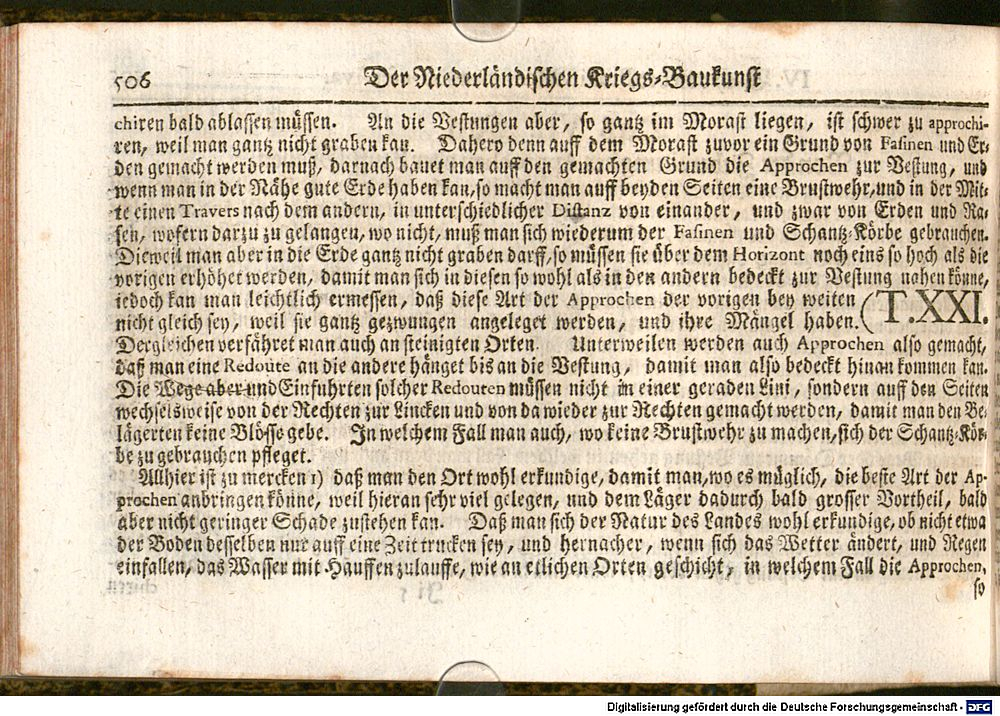 506 Der Niederländischen Kriegs-Baukunst
chiren bald ablassen müssen. An die Vestungen aber, so gantz im Morast liegen, ist schwer zu approchi-
ren, weil man gantz nicht graben kan. Dahero denn auff dem Morast zuvor ein Grund von Fasinen und Er-
den gemacht werden muß, darnach bauet man auff den gemachten Grund die Approchen zur Vestung, und
wenn man in der Nähe gute Erde haben kan, so macht man auff beyden Seiten eine Brustwehr, und in der Mit-
te einen Travers nach dem andern, in unterschiedlicher Distanz von einander, und zwar von Erden und Ra-
sen, wofern darzu zu gelangen, wo nicht, muß man sich wiederum der Fasinen und Schantz-Körbe gebrauchen.
Dieweil man aber in die Erde gantz nicht graben darff, so müssen sie über dem Horizont noch eins so hoch als die
vorigen erhöhet werden, damit man sich in diesen so wohl als in den andern bedeckt zur Vestung nahen könne,
iedoch kan man leichtlich ermessen, daß diese Art der Approchen der vorigen bey weiten (T.XXI.
nicht gleich sey, weil sie gantz gezwungen angeleget werden, und ihre Mängel haben.
Dergleichen verfähret man auch an steinigten Orten. Unterweilen werden auch Approchen also gemacht,
daß man eine Redoute an die andere hänget bis an die Vestung, damit man also bedeckt hinan kommen kan.
Die Wege aber und Einfuhrten solcher Redouten müssen nicht in einer geraden Lini, sondern auff den Seiten
wechselsweise von der Rechten zur Lincken und von da wieder zur Rechten gemacht werden, damit man den Be-
lägerten keine Blösse gebe. In welchem Fall man auch, wo keine Brustwehr zu machen, sich der Schantz-Kör-
be zu gebrauchen pfleget.
Allhier ist zu mercken 1) daß man den Ort wohl erkundige, damit man, wo es müglich, die beste Art der Ap-
prochen anbringen könne, weil hieran sehr viel gelegen, und dem Läger dadurch bald grosser Vortheil, bald
aber nicht geringer Schade zustehen kan. Daß man sich der Natur des Landes wohl erkundige, ob nicht etwa
der Boden desselben nur auff eine Zeit trucken sey, und hernacher, wenn sich das Wetter ändert, und Regen
einfallen, das Wasser mit Hauffen zulauffe, wie an etlichen Orten geschicht, in welchem Fall die Approchen,
so
Digitalisierung gefördert durch die Deutsche Forschungsgemeinschaft - DFG